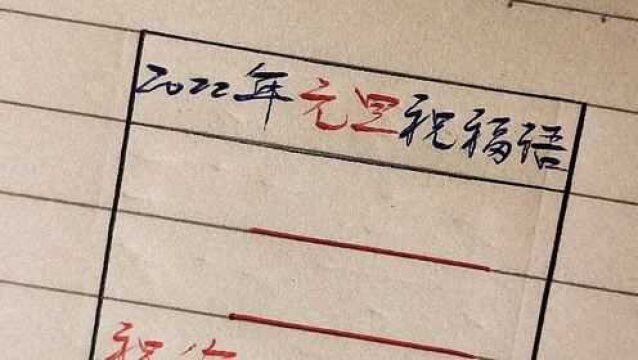 2022年元旦祝福语
祝你